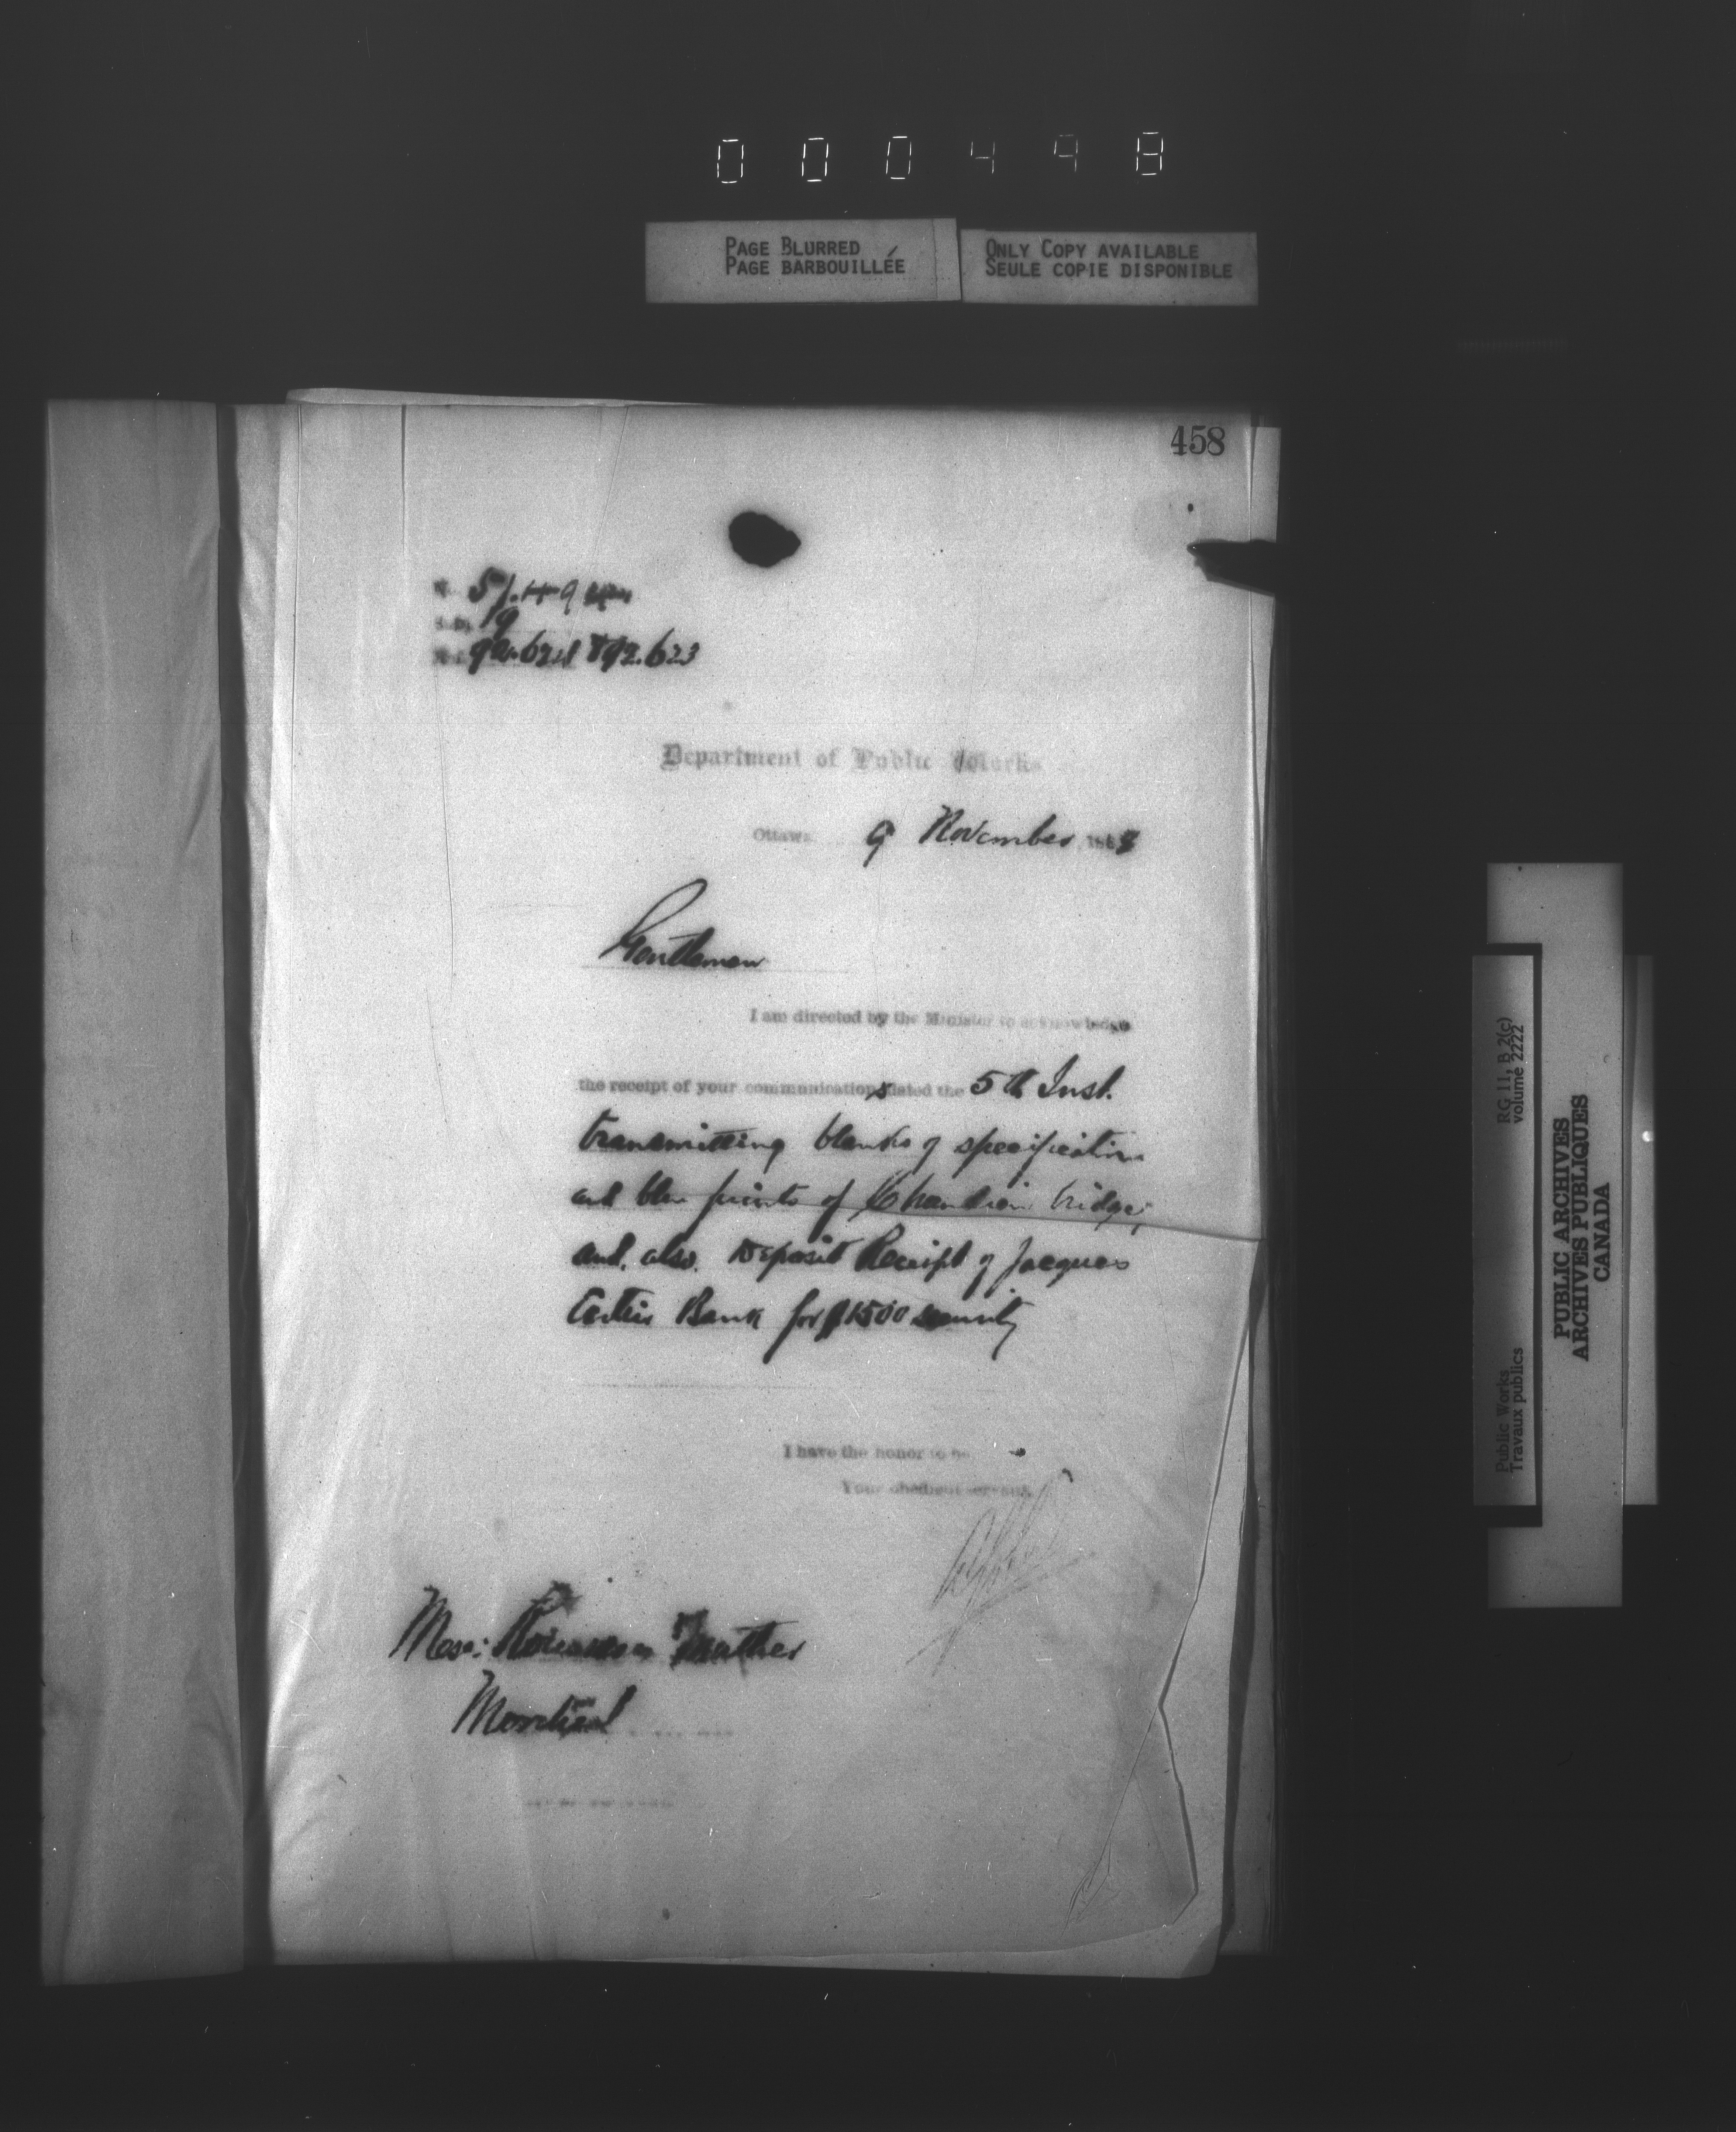 000498
PAGE BLURRED
PAGE BARBOUILLÉE
ONLY COPY AVAILABLE
SEULE COPIE DISPONIBLE
458
19
92.623
Department of Public Works
Ottawa 9 November, 188
Gentlemen
I am directed by the Minister to acknowledge
the receipt of your communications dated the 5th Inst.
transmitting blanks of specification
and blue prints of Chaudiere bridge;
and, also, Deposit Receipt of Jacques
Cartier Bank for $1500 security
I have the honor to be
Your obedient servant,
Mess:
Montreal
RG 11, B 2(c)
volume 2222
Public Works
Travaux publics
PUBLIC ARCHIVES
ARCHIVES PUBLIQUES
CANADA